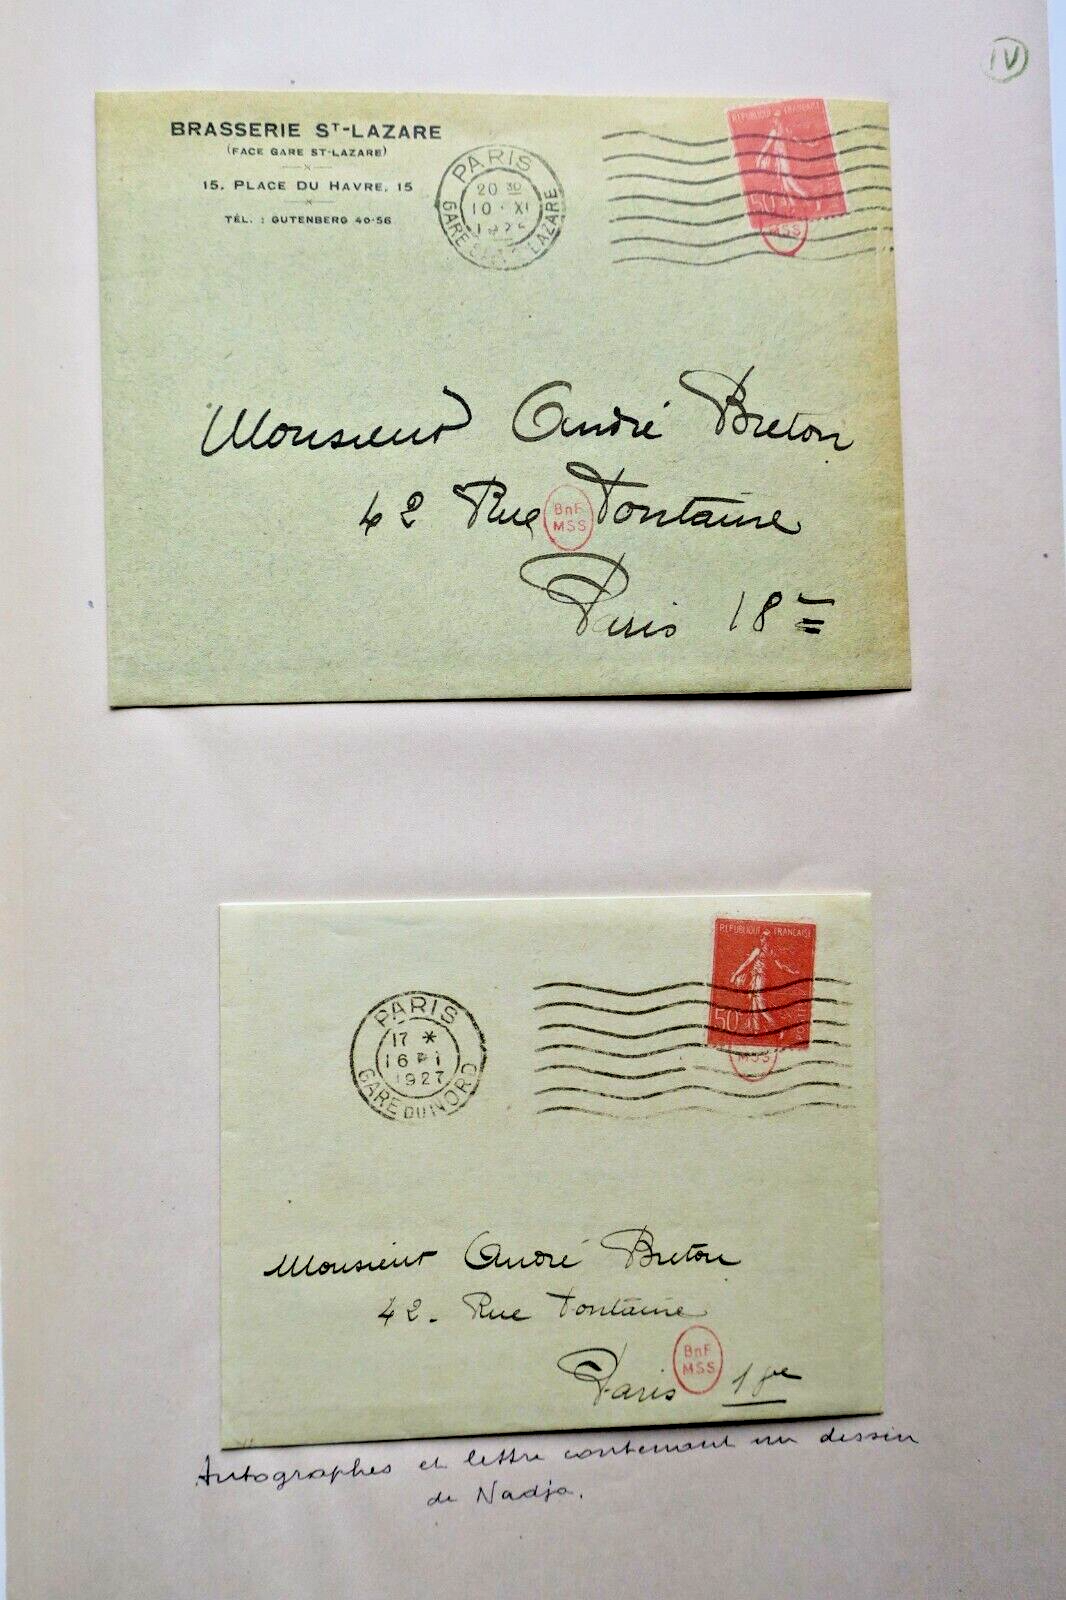 IV
BRASSERIE ST-LAZARE
(FACE GARE ST-LAZARE)
15, PLACE DU HAVRE, 15
TÉL. : GUTENBERG 40-56
PARIS
20 30
10 · XI
GARE ST-LAZARE
REPUBLIQUE FRANÇAISE
50
MSS
Monsieur André Breton
42 Rue Fontaine
BnF
MSS
Paris 18e
REPUBLIQUE FRANÇAISE
50
MSS
PARIS
17 *
16
1927
GARE DU NORD
Monsieur André Breton
42 - Rue Fontaine
BnF
MSS
Paris 18e
Autographes et lettre contenant un dessin
de Nadja.